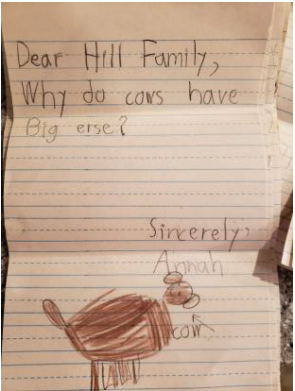 Dear Hill Family,
Why do cows have
Big erse?
Sincerely,
Annah
cow